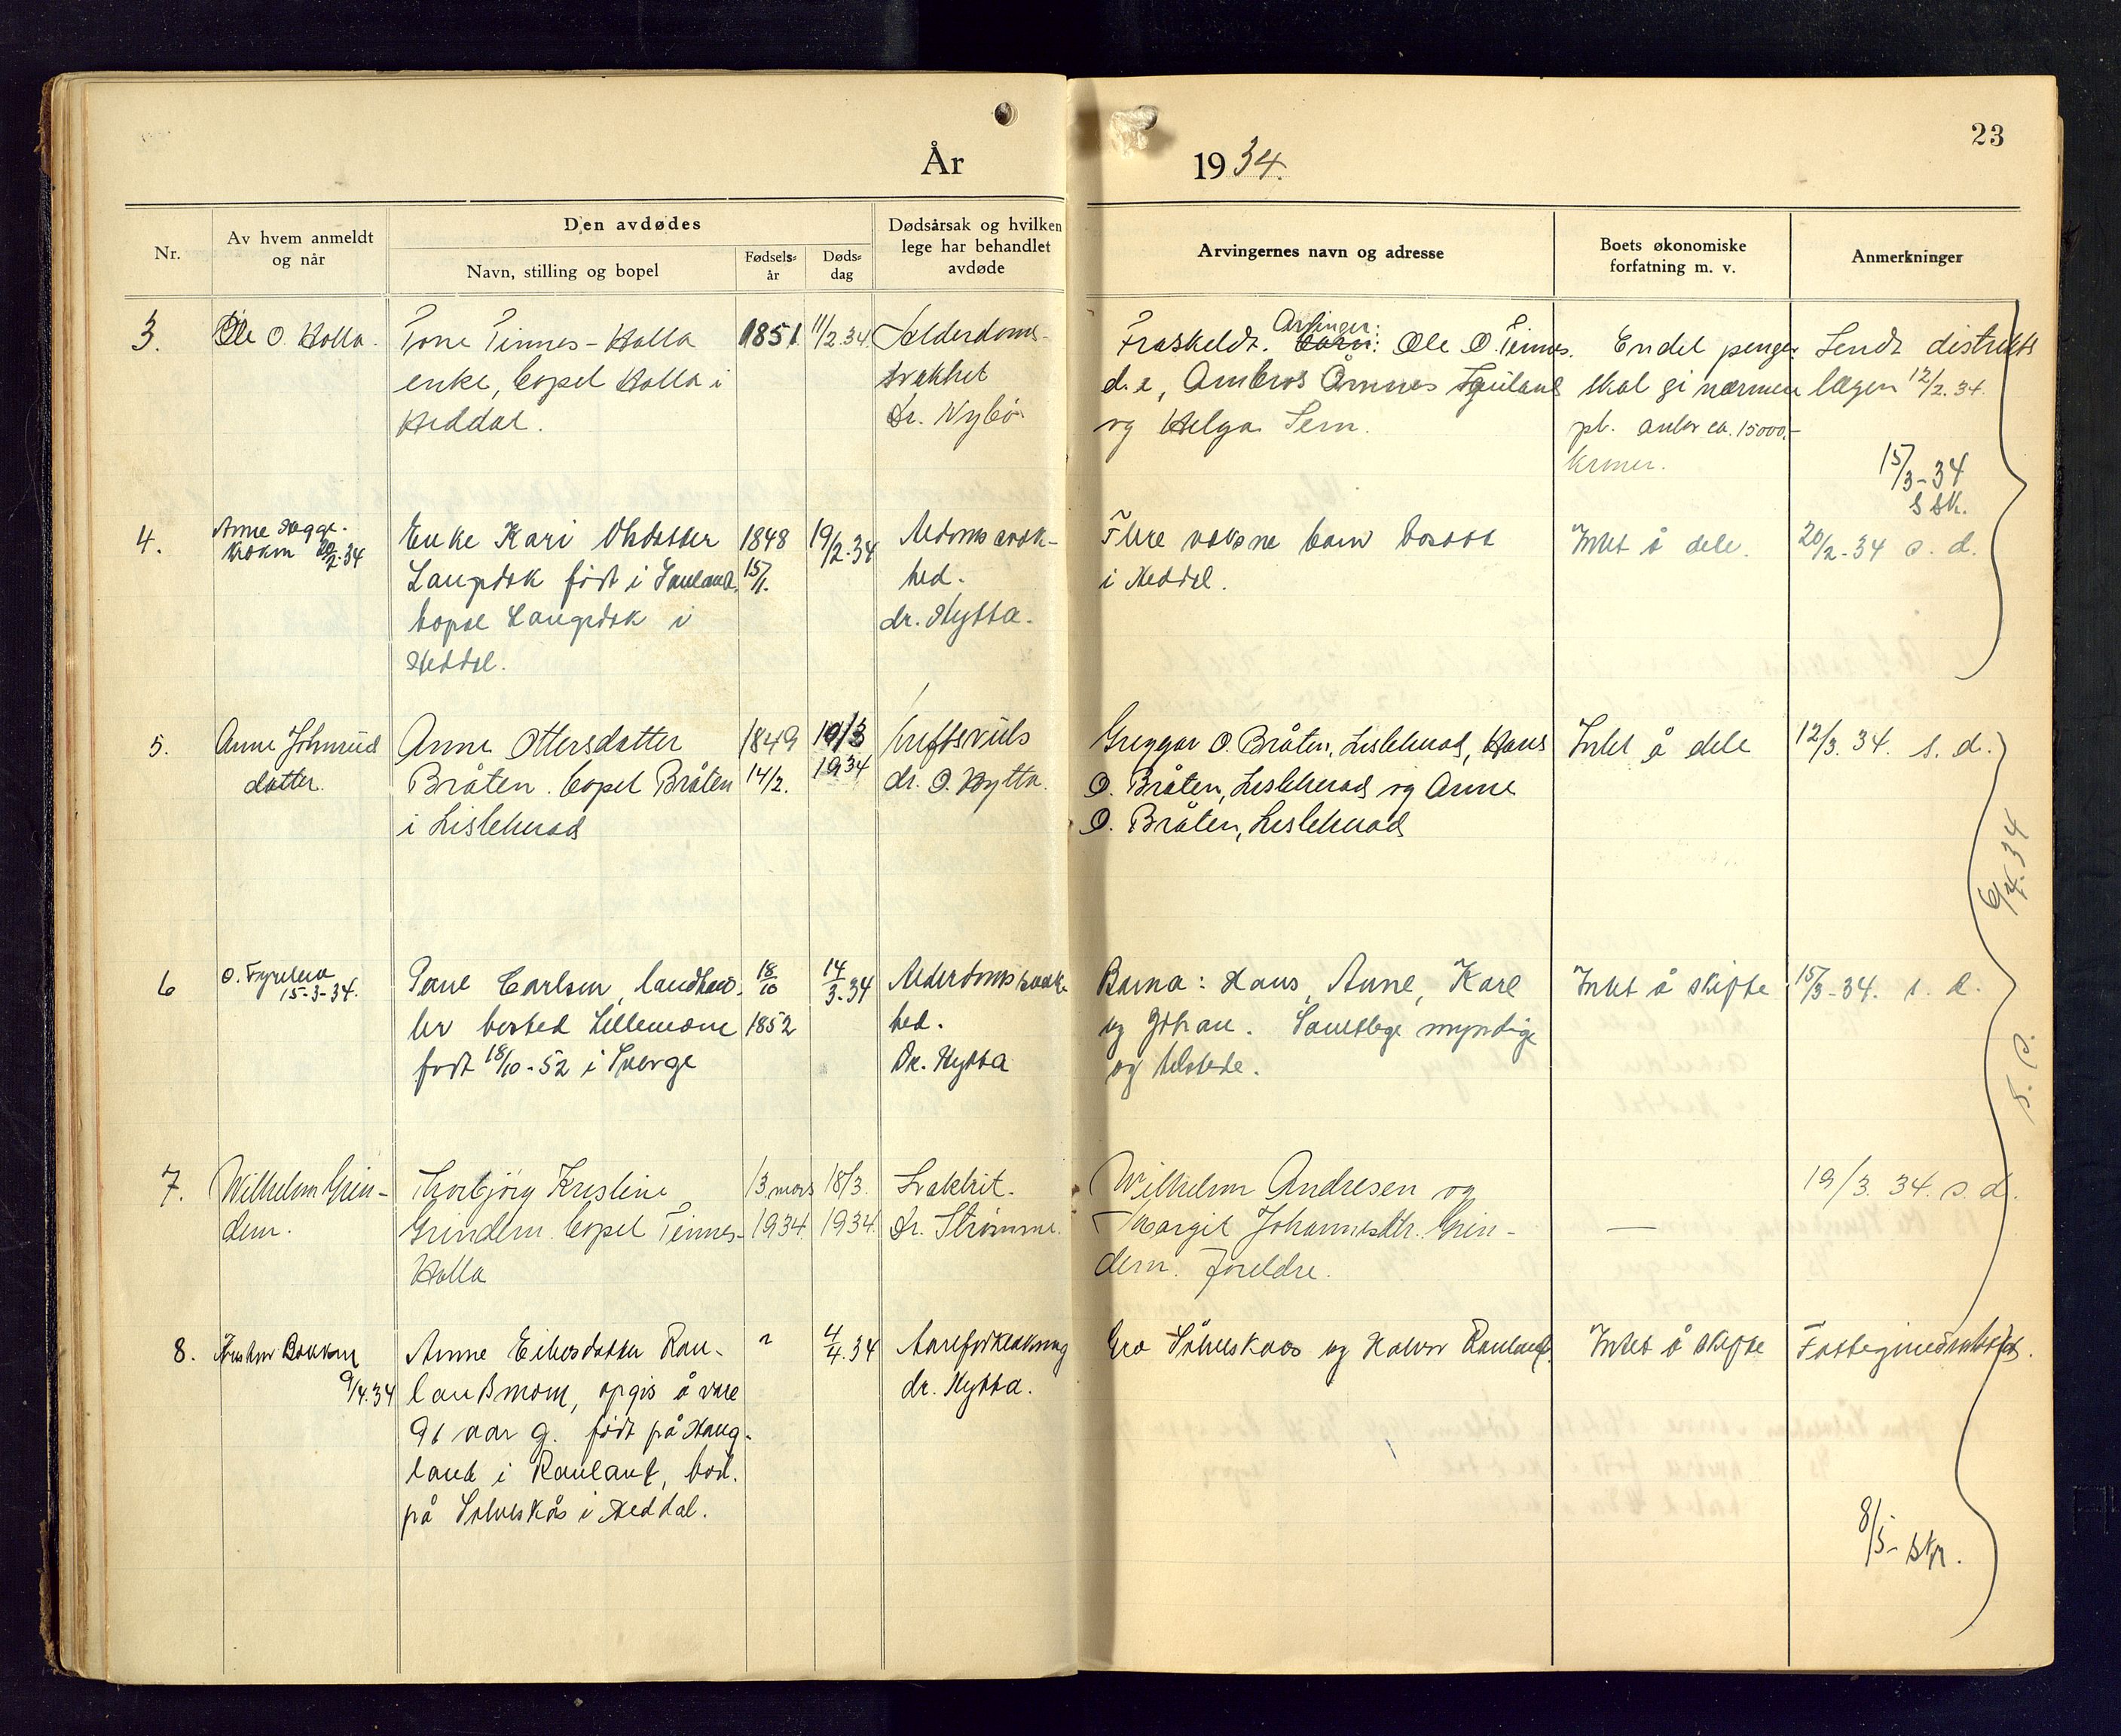 23
År 1934.
Nr.
Av hvem anmeldt
og når
Den avdødes
Navn, stilling og bopel
Fødsels-
år
Døds-
dag
Dødsårsak og hvilken
lege har behandlet
avdøde
Arvingernes navn og adresse
Boets økonomiske
forfatning m. v.
Anmerkninger
3.
Ole O. Holla.
Tone Tinnes-Holla
enke, bopel Holla i
Heddal.
1851.
11/2.34.
Alderdoms-
svakhet
Dr. Nybö
Fraskeldt. Arvinger: Barn: Ole O. Tinnes.
d.e, Ambros Åmnes Sauland
og Helga Sem.
Endel penger
skal gi nærmere
pb. antar ca. 15000,-
kroner.
Sendt distrikts
lægen 12/2.34.
15/3-34
s sk.
4.
Anne
20/2.34
Enke Kari Olsdatter
født i Sauland.
bopel i
Heddal.
1848
15/1.
19/2.34
hed.
dr. Hytta.
Flere voksne barn bosatt
i Heddal.
Intet å dele.
20/2-34 s. d.
5.
Anne Johnsrud
datter.
Anne Ottersdatter
Bråten. bopel Bråten
i Lisleherad
1849
14/2.
10/3
1934
dr. O. Hytta.
Greggar O. Bråten, Lisleherad, Hans
O. Bråten, Lisleherad og Anne
O. Bråten, Lisleherad
Intet å dele
12/3. 34. s. d.
9/4.34
s. d.
6
O.
15-3-34.
Carlsen, landhand-
ler bosted
født 18/10-52 i Sverge
18/10
1852
14/3.34
Alderdomssvak-
hed.
Dr. Hytta
Barna: Hans, Anne, Karl
og Johan. Samtlege myndige
og tilstede.
Intet å skifte
15/3-34. s. d.
7.
Wilhelm Grin-
dem.
Thorbjörg Kristine
Grindem. bopel Tinnes-
Holla
13 mars
1934.
18/3.
1934.
Svakhet.
Dr. Strömme.
Wilhelm Andresen og
Margit Johannesdtr. Grin-
dem. foreldre.
—
19/3. 34. s. d.
8.
Bakken
9/4.34
Anne Eilevsdatter Rau-
landsmoen, opgis å være
91 aar g. født på Haug-
land i Rauland, bod.
på Sölveskås i Heddal.
4/4.34
Aareforkalkning
dr. Hytta.
Gro Sölveskaas og Halvor Rauland.
Intet å skifte
8/5- skr.